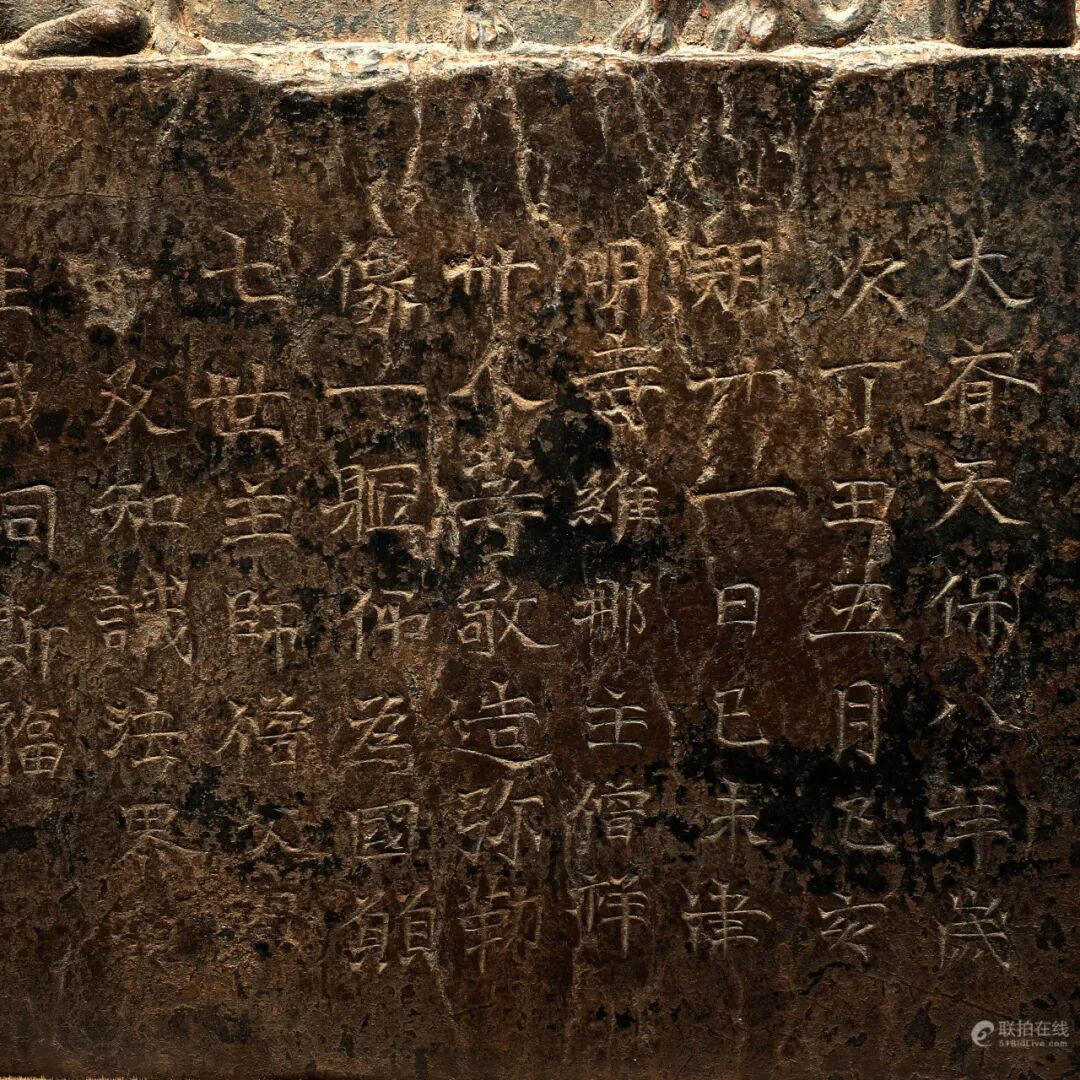 大齊天保八年歲
次丁丑五月己亥
朔廿一日己未津
明寺維那主僧祥
卅人等敬造弥勒
像一軀仰為國願
七世主師僧父
及知識法界
生咸同斯福
联拍在线
51BidLive.com